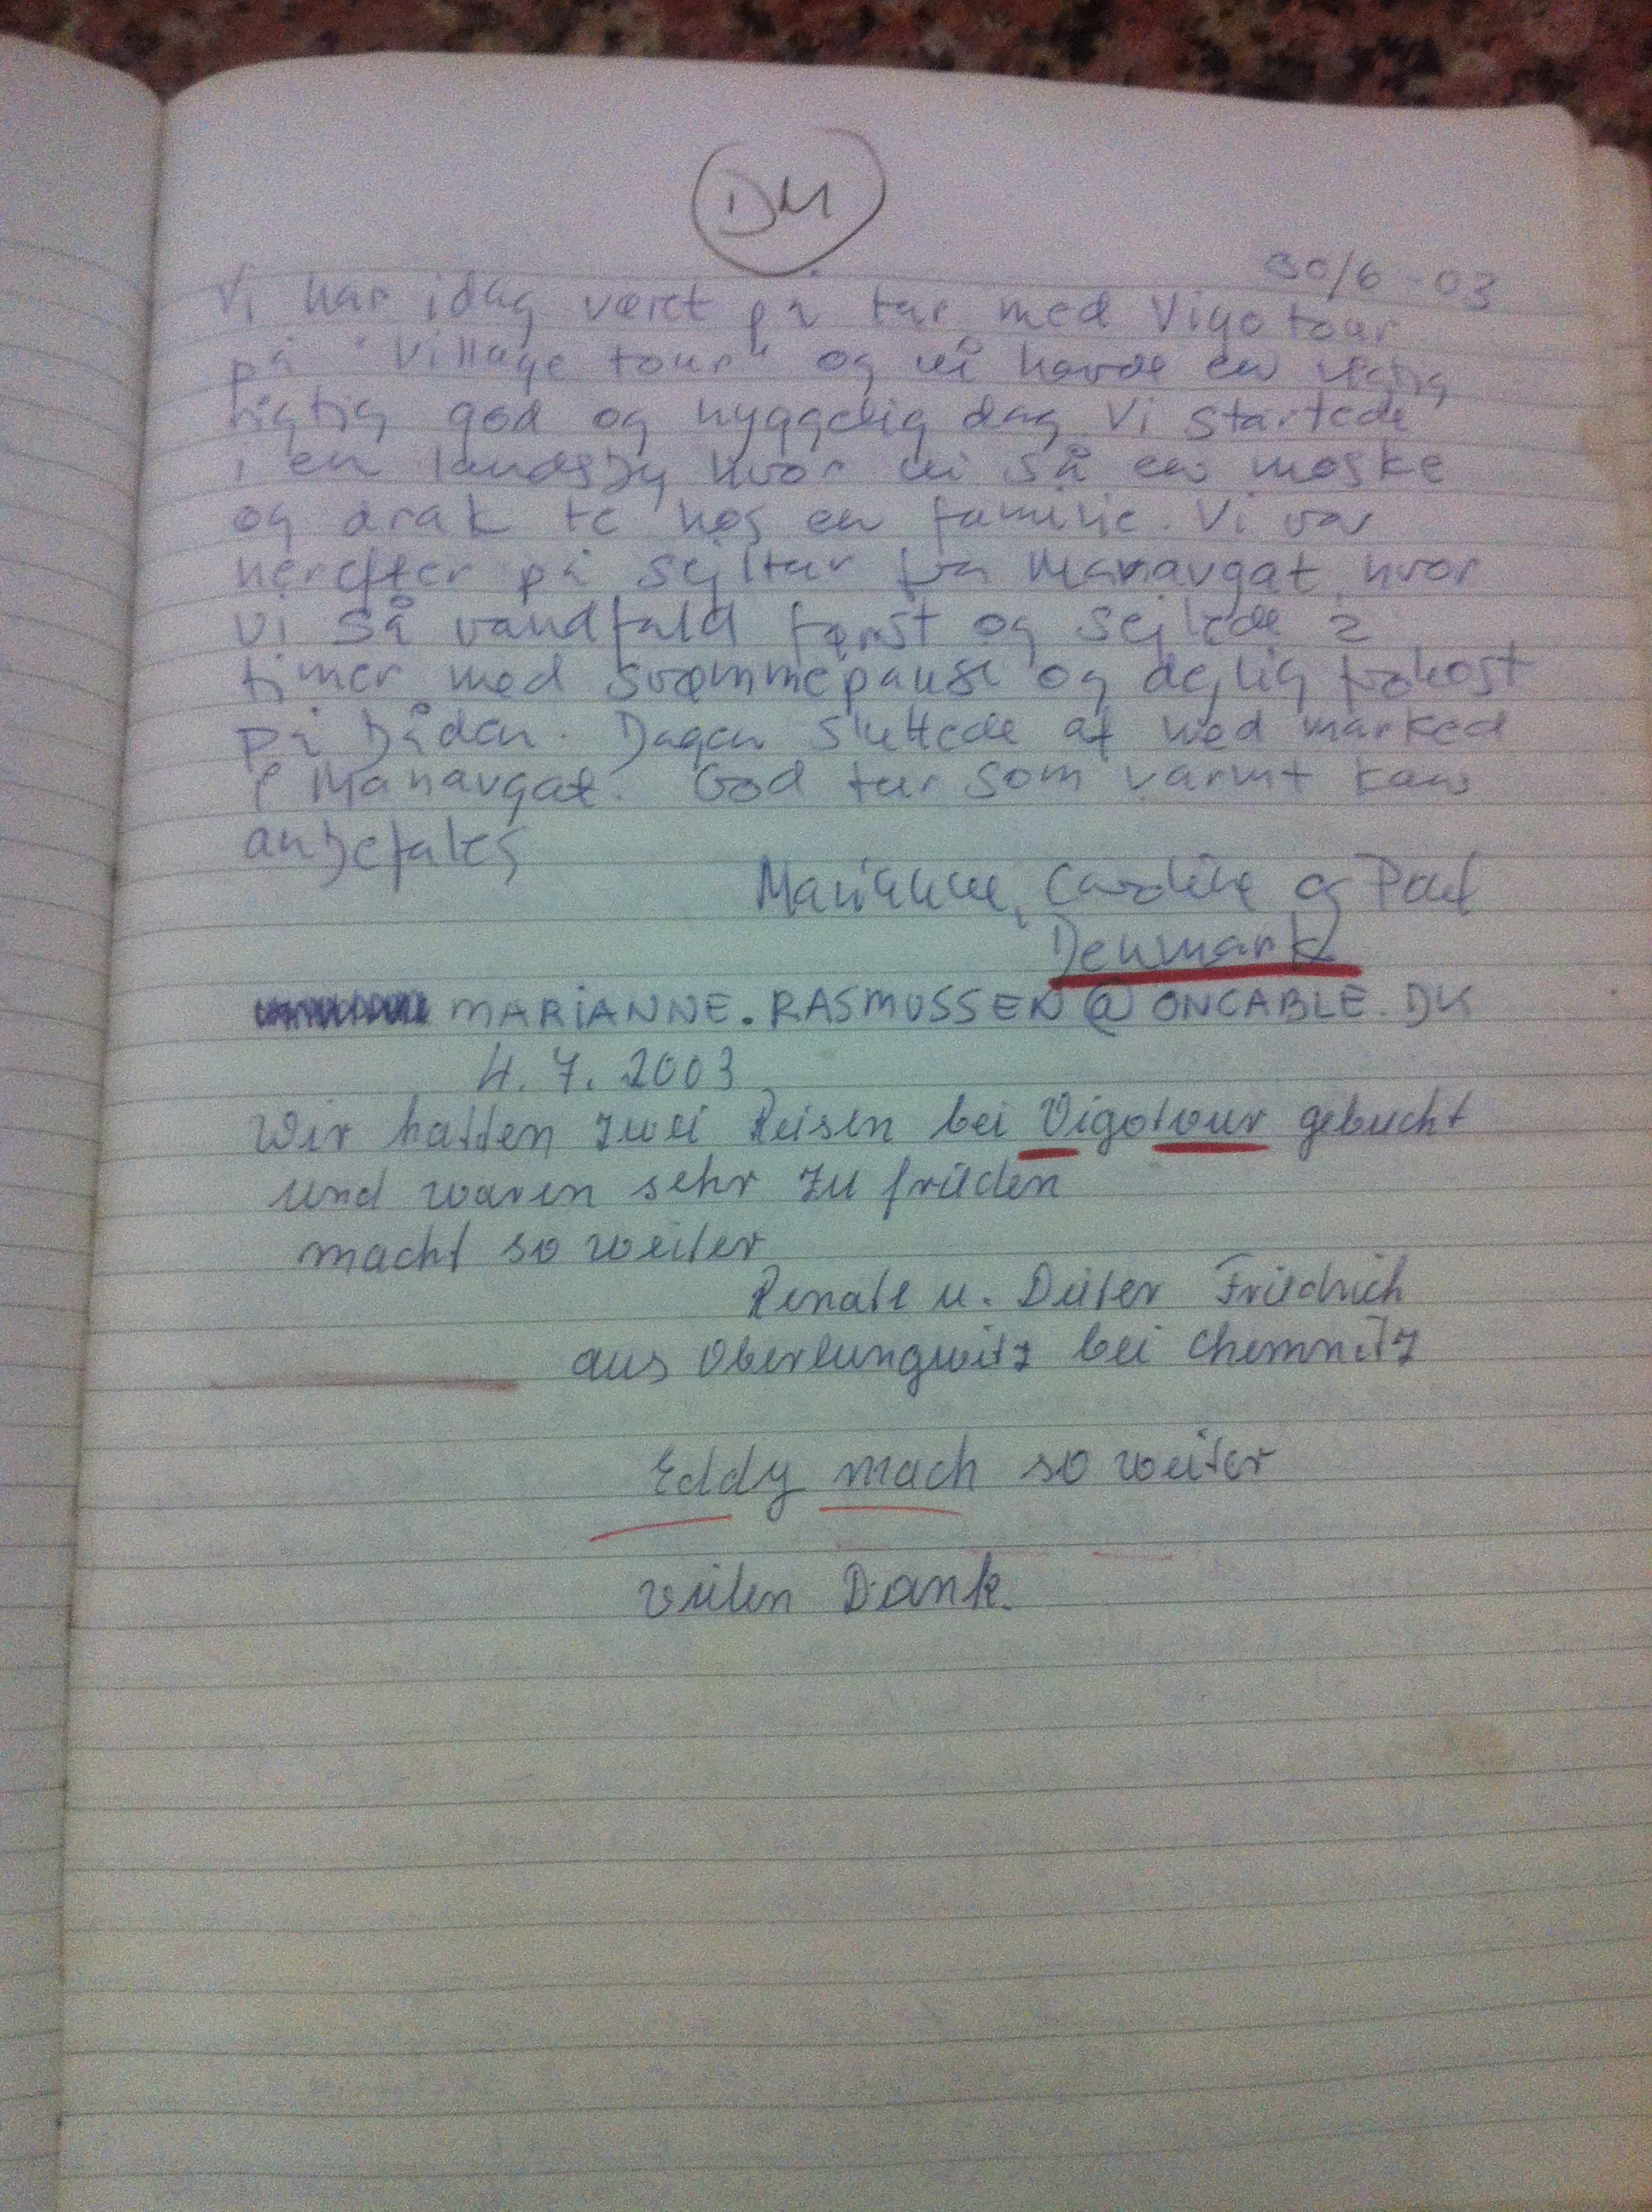 DM
30/6-03
Vi har idag været på tur med Vigo tour
på "Village tour" og vi havde en rigtig
rigtig god og hyggelig dag. Vi startede
i en landsby hvor vi så en moske
og drak te hos en familie. Vi var
herefter på sejltur fra Manavgat hvor
vi så vandfald først og sejlede 2
timer med svømmepause og dejlig frokost
på båden. Dagen sluttede af med marked
i Manavgat. God tur som varmt kan
anbefales
Marianne, Caroline og Poul
Denmark
MARIANNE.RASMUSSEN@ONCABLE.DK
4.7.2003
Wir hatten zwei Reisen bei Vigotour gebucht
und waren sehr zu frieden
macht so weiter
Renate u. Dieter Friedrich
aus Oberlungwitz bei Chemnitz
Eddy mach so weiter
vielen Dank.